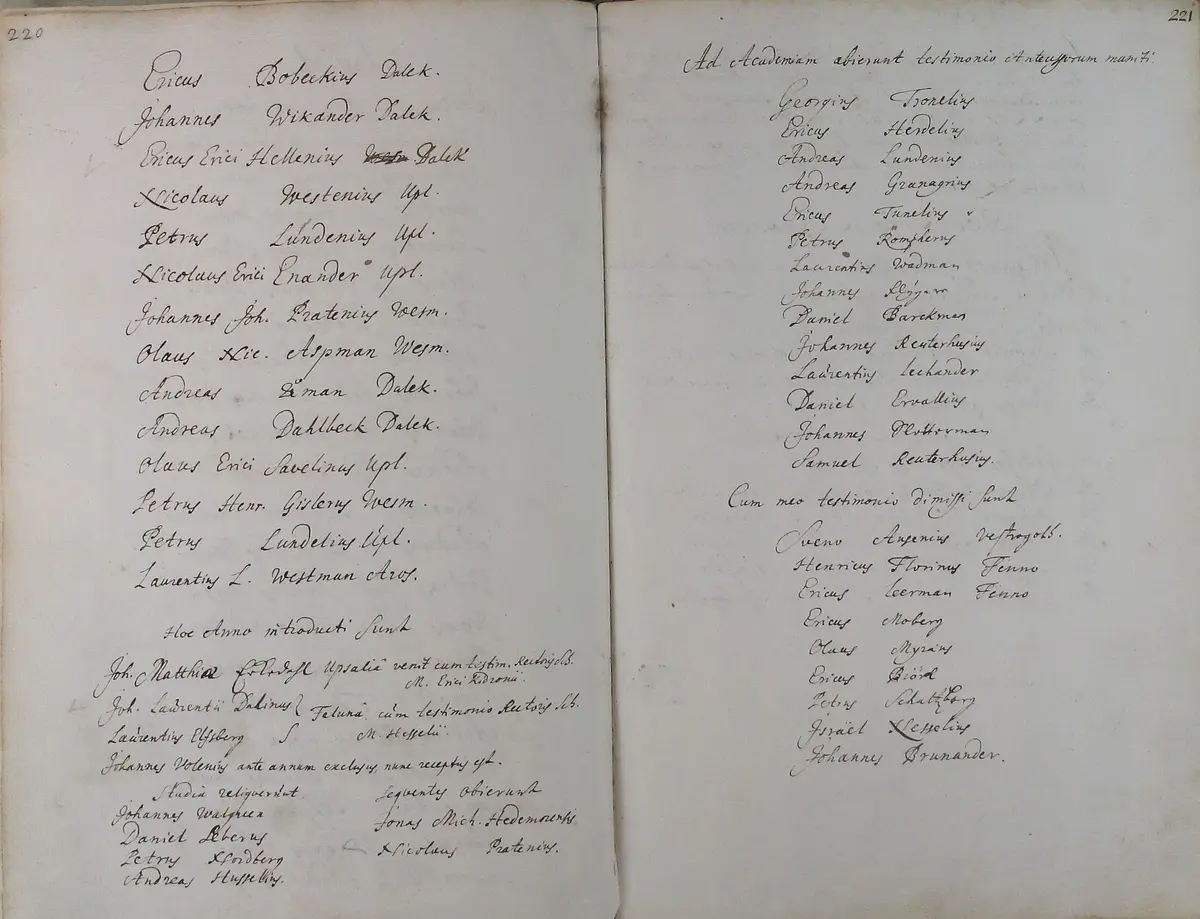 220
Ericus Bobeckius Dalek.
Johannes Wikander Dalek.
Ericus Erici Hellenius Dalek
Nicolaus Westenius Upl.
Petrus Lundenius Upl.
Nicolaus Erici Enander Upl.
Johannes Joh. Pratenius Wesm.
Olaus Nic. Aspman Wesm.
Andreas Dalek.
Andreas Dahlbeck Dalek.
Olaus Erici Savelinus Upl.
Petrus Henr. Gislerus Wesm.
Petrus Lundelius Upl.
Laurentius L. Westman Aros.
Hoc Anno introducti sunt
Joh. Matthiæ Upsaliâ venit cum testim. Rectoris Sch.
M. Erici
Joh. Laurentii Dalinus Falunâ, cum testimonio Rectoris Sch.
Laurentius Elfsberg M. Hesselii.
Johannes Volenius ante annum exclusus, nunc receptus est.
Studia reliquerunt
Johannes Walgreen
Daniel
Petrus Nordberg
Andreas Hussellius.
sequentes obierunt
Jonas Mich. Hedemorensis
Nicolaus Pratenius.
221
Ad Academiam abierunt testimonio Antecessorum muniti.
Georgius Tronelius
Ericus Herdelius
Andreas Lundenius
Andreas Granagrius
Ericus Tunelius
Petrus
Laurentius Wadman
Johannes
Daniel Barckman
Johannes Reuterhusius
Laurentius Lechander
Daniel Ervallius
Johannes
Samuel Reuterhusius.
Cum meo testimonio dimissi sunt
Sveno Ausenius Vestrogoth.
Henricus Florinus Fenno
Ericus Leerman Fenno
Ericus Moberg
Olaus Myræus
Ericus Biörk
Petrus Schultzberg
Israël Nesselius
Johannes Brunander.